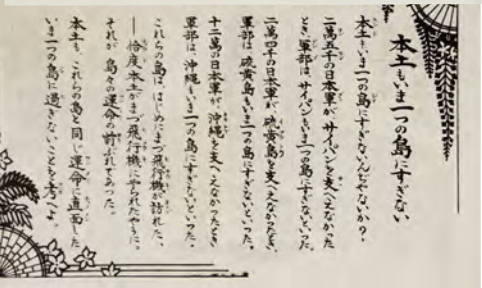 本土もいま一つの島にすぎない
本土もいま一つの島にすぎないんぢやないか?
二萬五千の日本軍がサイパンを支へえなかった
とき、軍部は、サイパンもいま一つの島にすぎないといった。
二萬四千の日本軍が、硫黄島を支へえなかったとき、
軍部は、硫黄島もいま一つの島にすぎないといった。
十二萬の日本軍が、沖縄を支へえなかったとき
軍部は、沖縄もいま一つの島にすぎないといった。
これらの島は、はじめにまづ飛行機が訪れた、
―恰度本土がまづ飛行機にやられたやうに。
それが島々の運命の前ぶれであった。
本土も、これらの島と同じ運命に直面した
いま一つの島に過ぎないことを考へよ。